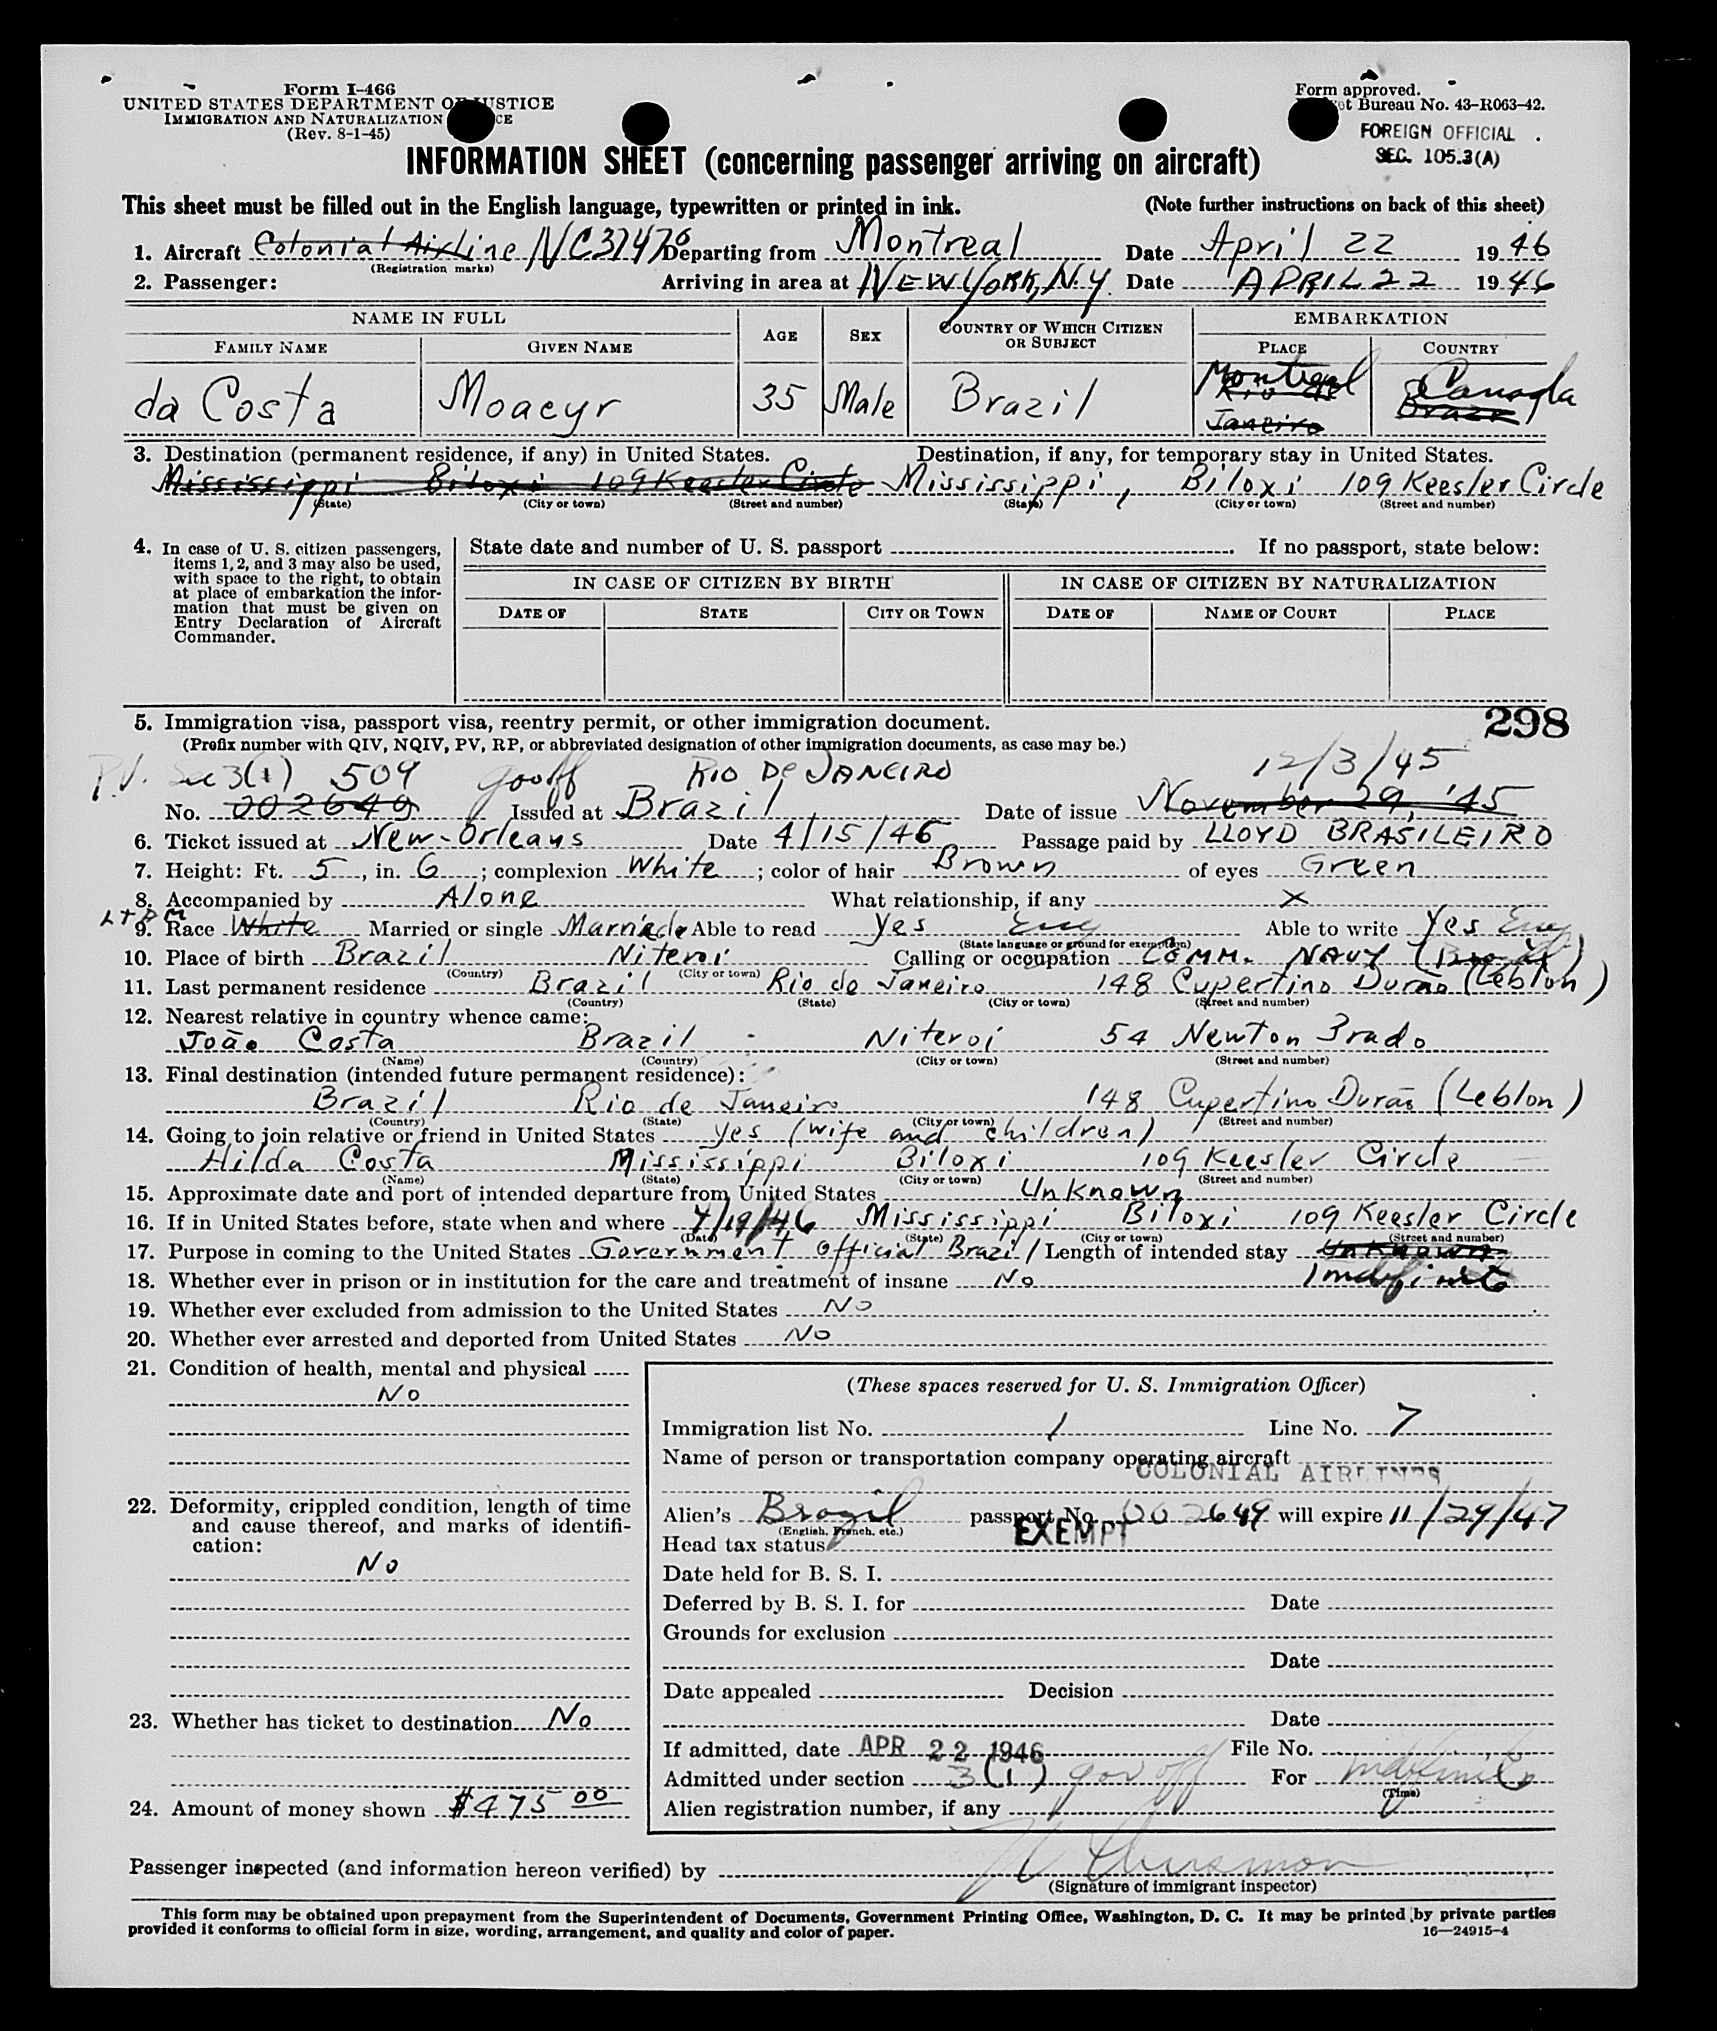 Form I-466
UNITED STATES DEPARTMENT OF JUSTICE
IMMIGRATION AND NATURALIZATION
(Rev. 8-1-45)
Form approved.
Bureau No. 43-R063-42.
FOREIGN OFFICIAL
SEC. 105.3(A)
INFORMATION SHEET (concerning passenger arriving on aircraft)
This sheet must be filled out in the English language, typewritten or printed in ink. (Note further instructions on back of this sheet)
1. Aircraft Colonial Airline NC37470 Departing from Montreal Date April 22 1946
(Registration marks)
2. Passenger: Arriving in area at NEW YORK, N.Y. Date APRIL 22 1946
NAME IN FULL AGE SEX COUNTRY OF WHICH CITIZEN OR SUBJECT EMBARKATION
FAMILY NAME GIVEN NAME PLACE COUNTRY
da Costa Moacyr 35 Male Brazil Montreal Canada
Rio de Janeiro Brazil
3. Destination (permanent residence, if any) in United States. Destination, if any, for temporary stay in United States.
Mississippi Biloxi 109 Keesler Circle Mississippi, Biloxi 109 Keesler Circle
(State) (City or town) (Street and number) (State) (City or town) (Street and number)
4. In case of U. S. citizen passengers, items 1, 2, and 3 may also be used, with space to the right, to obtain at place of embarkation the information that must be given on Entry Declaration of Aircraft Commander.
State date and number of U. S. passport If no passport, state below:
IN CASE OF CITIZEN BY BIRTH IN CASE OF CITIZEN BY NATURALIZATION
DATE OF STATE CITY OR TOWN DATE OF NAME OF COURT PLACE
298
5. Immigration visa, passport visa, reentry permit, or other immigration document.
(Prefix number with QIV, NQIV, PV, RP, or abbreviated designation of other immigration documents, as case may be.)
P.V. Sec 3(1) 509 RIO DE JANEIRO 12/3/45
No. 002649 Issued at Brazil Date of issue November 29, '45
6. Ticket issued at New-Orleans Date 4/15/46 Passage paid by LLOYD BRASILEIRO
7. Height: Ft. 5, in. 6; complexion White; color of hair Brown of eyes Green
8. Accompanied by Alone What relationship, if any X
9. Race White Married or single Married Able to read Yes Eng Able to write Yes Eng
(State language or ground for exemption)
10. Place of birth Brazil Niteroi Calling or occupation COMM. NAVY (Brazil)
(Country) (City or town)
11. Last permanent residence Brazil Rio de Janeiro 148 Cupertino Durão (Leblon)
(Country) (State) (City or town) (Street and number)
12. Nearest relative in country whence came:
João Costa Brazil - Niteroi 54 Newton Prado
(Name) (Country) (City or town) (Street and number)
13. Final destination (intended future permanent residence):
Brazil Rio de Janeiro 148 Cupertino Durão (Leblon)
(Country) (State) (City or town) (Street and number)
14. Going to join relative or friend in United States Yes (wife and children)
Hilda Costa Mississippi Biloxi 109 Keesler Circle
(Name) (State) (City or town) (Street and number)
15. Approximate date and port of intended departure from United States Unknown
16. If in United States before, state when and where 4/19/46 Mississippi Biloxi 109 Keesler Circle
(Date) (State) (City or town) (Street and number)
17. Purpose in coming to the United States Government Official Brazil Length of intended stay Unknown
Indefinite
18. Whether ever in prison or in institution for the care and treatment of insane No
19. Whether ever excluded from admission to the United States No
20. Whether ever arrested and deported from United States No
21. Condition of health, mental and physical
No
22. Deformity, crippled condition, length of time and cause thereof, and marks of identification:
No
23. Whether has ticket to destination No
24. Amount of money shown $475 00
(These spaces reserved for U. S. Immigration Officer)
Immigration list No. 1 Line No. 7
Name of person or transportation company operating aircraft
COLONIAL AIRLINES
Alien's Brazil passport No. 002649 will expire 11/29/47
(English, French, etc.)
Head tax status EXEMPT
Date held for B. S. I.
Deferred by B. S. I. for Date
Grounds for exclusion
Date
Date appealed Decision
Date
If admitted, date APR 22 1946 File No.
Admitted under section 3(1) gov off For indefinite
(Time)
Alien registration number, if any
Passenger inspected (and information hereon verified) by
(Signature of immigrant inspector)
This form may be obtained upon prepayment from the Superintendent of Documents, Government Printing Office, Washington, D. C. It may be printed by private parties
provided it conforms to official form in size, wording, arrangement, and quality and color of paper. 16—24915-4